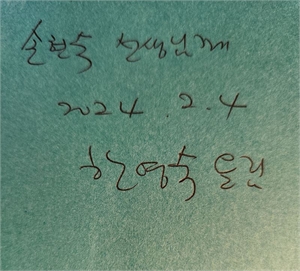 손현숙 선생님께
2024. 2. 4
한영숙 드림